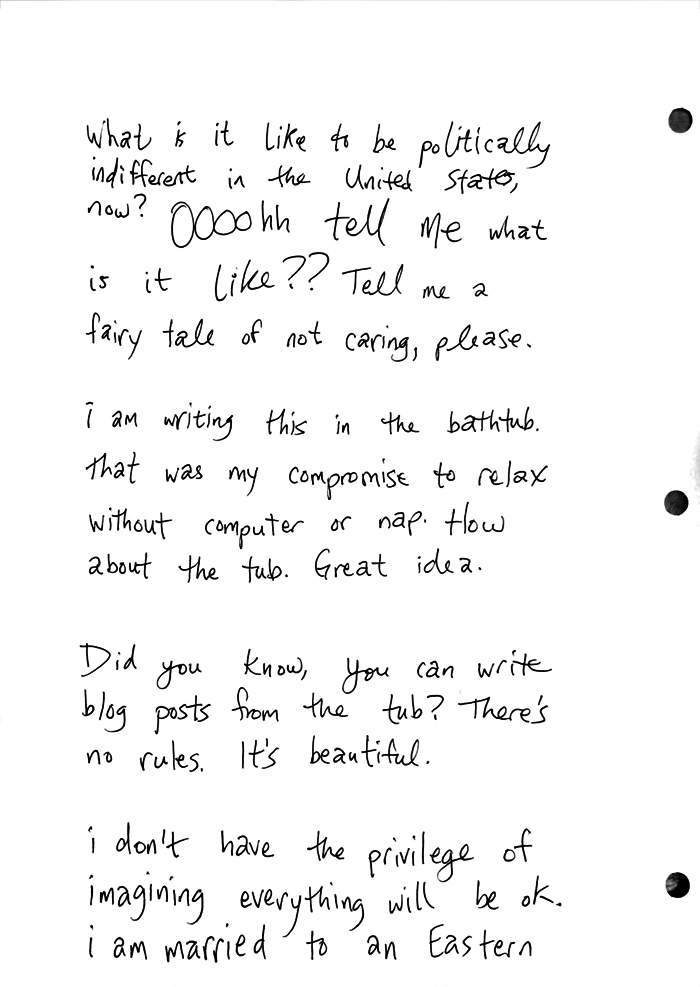 What is it like to be politically
indifferent in the United States,
now? OOOOhh tell me what
is it like?? Tell me a
fairy tale of not caring, please.
i am writing this in the bathtub.
that was my compromise to relax
without computer or nap. How
about the tub. Great idea.
Did you know, you can write
blog posts from the tub? There's
no rules. It's beautiful.
i don't have the privilege of
imagining everything will be ok.
i am married to an Eastern